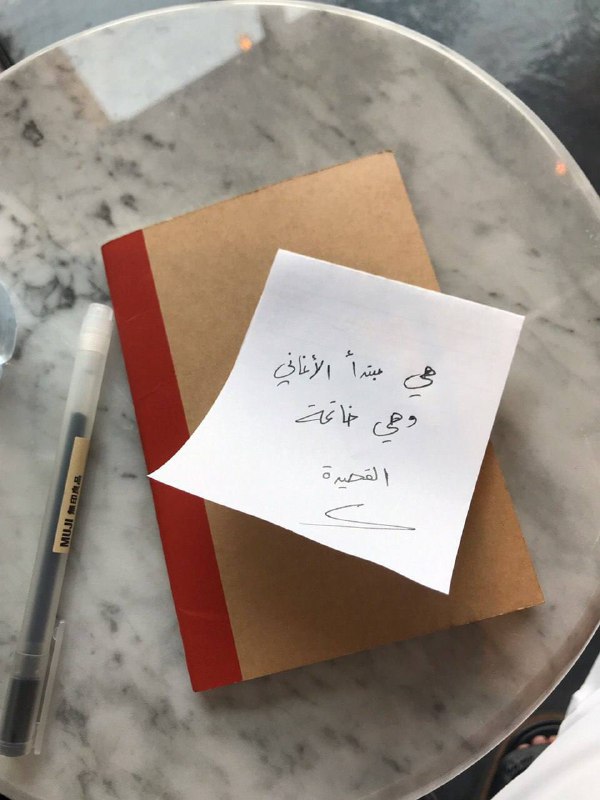 هي مبتدأ الأغاني
وهي خاتمة
القصيدة
MUJI 無印良品